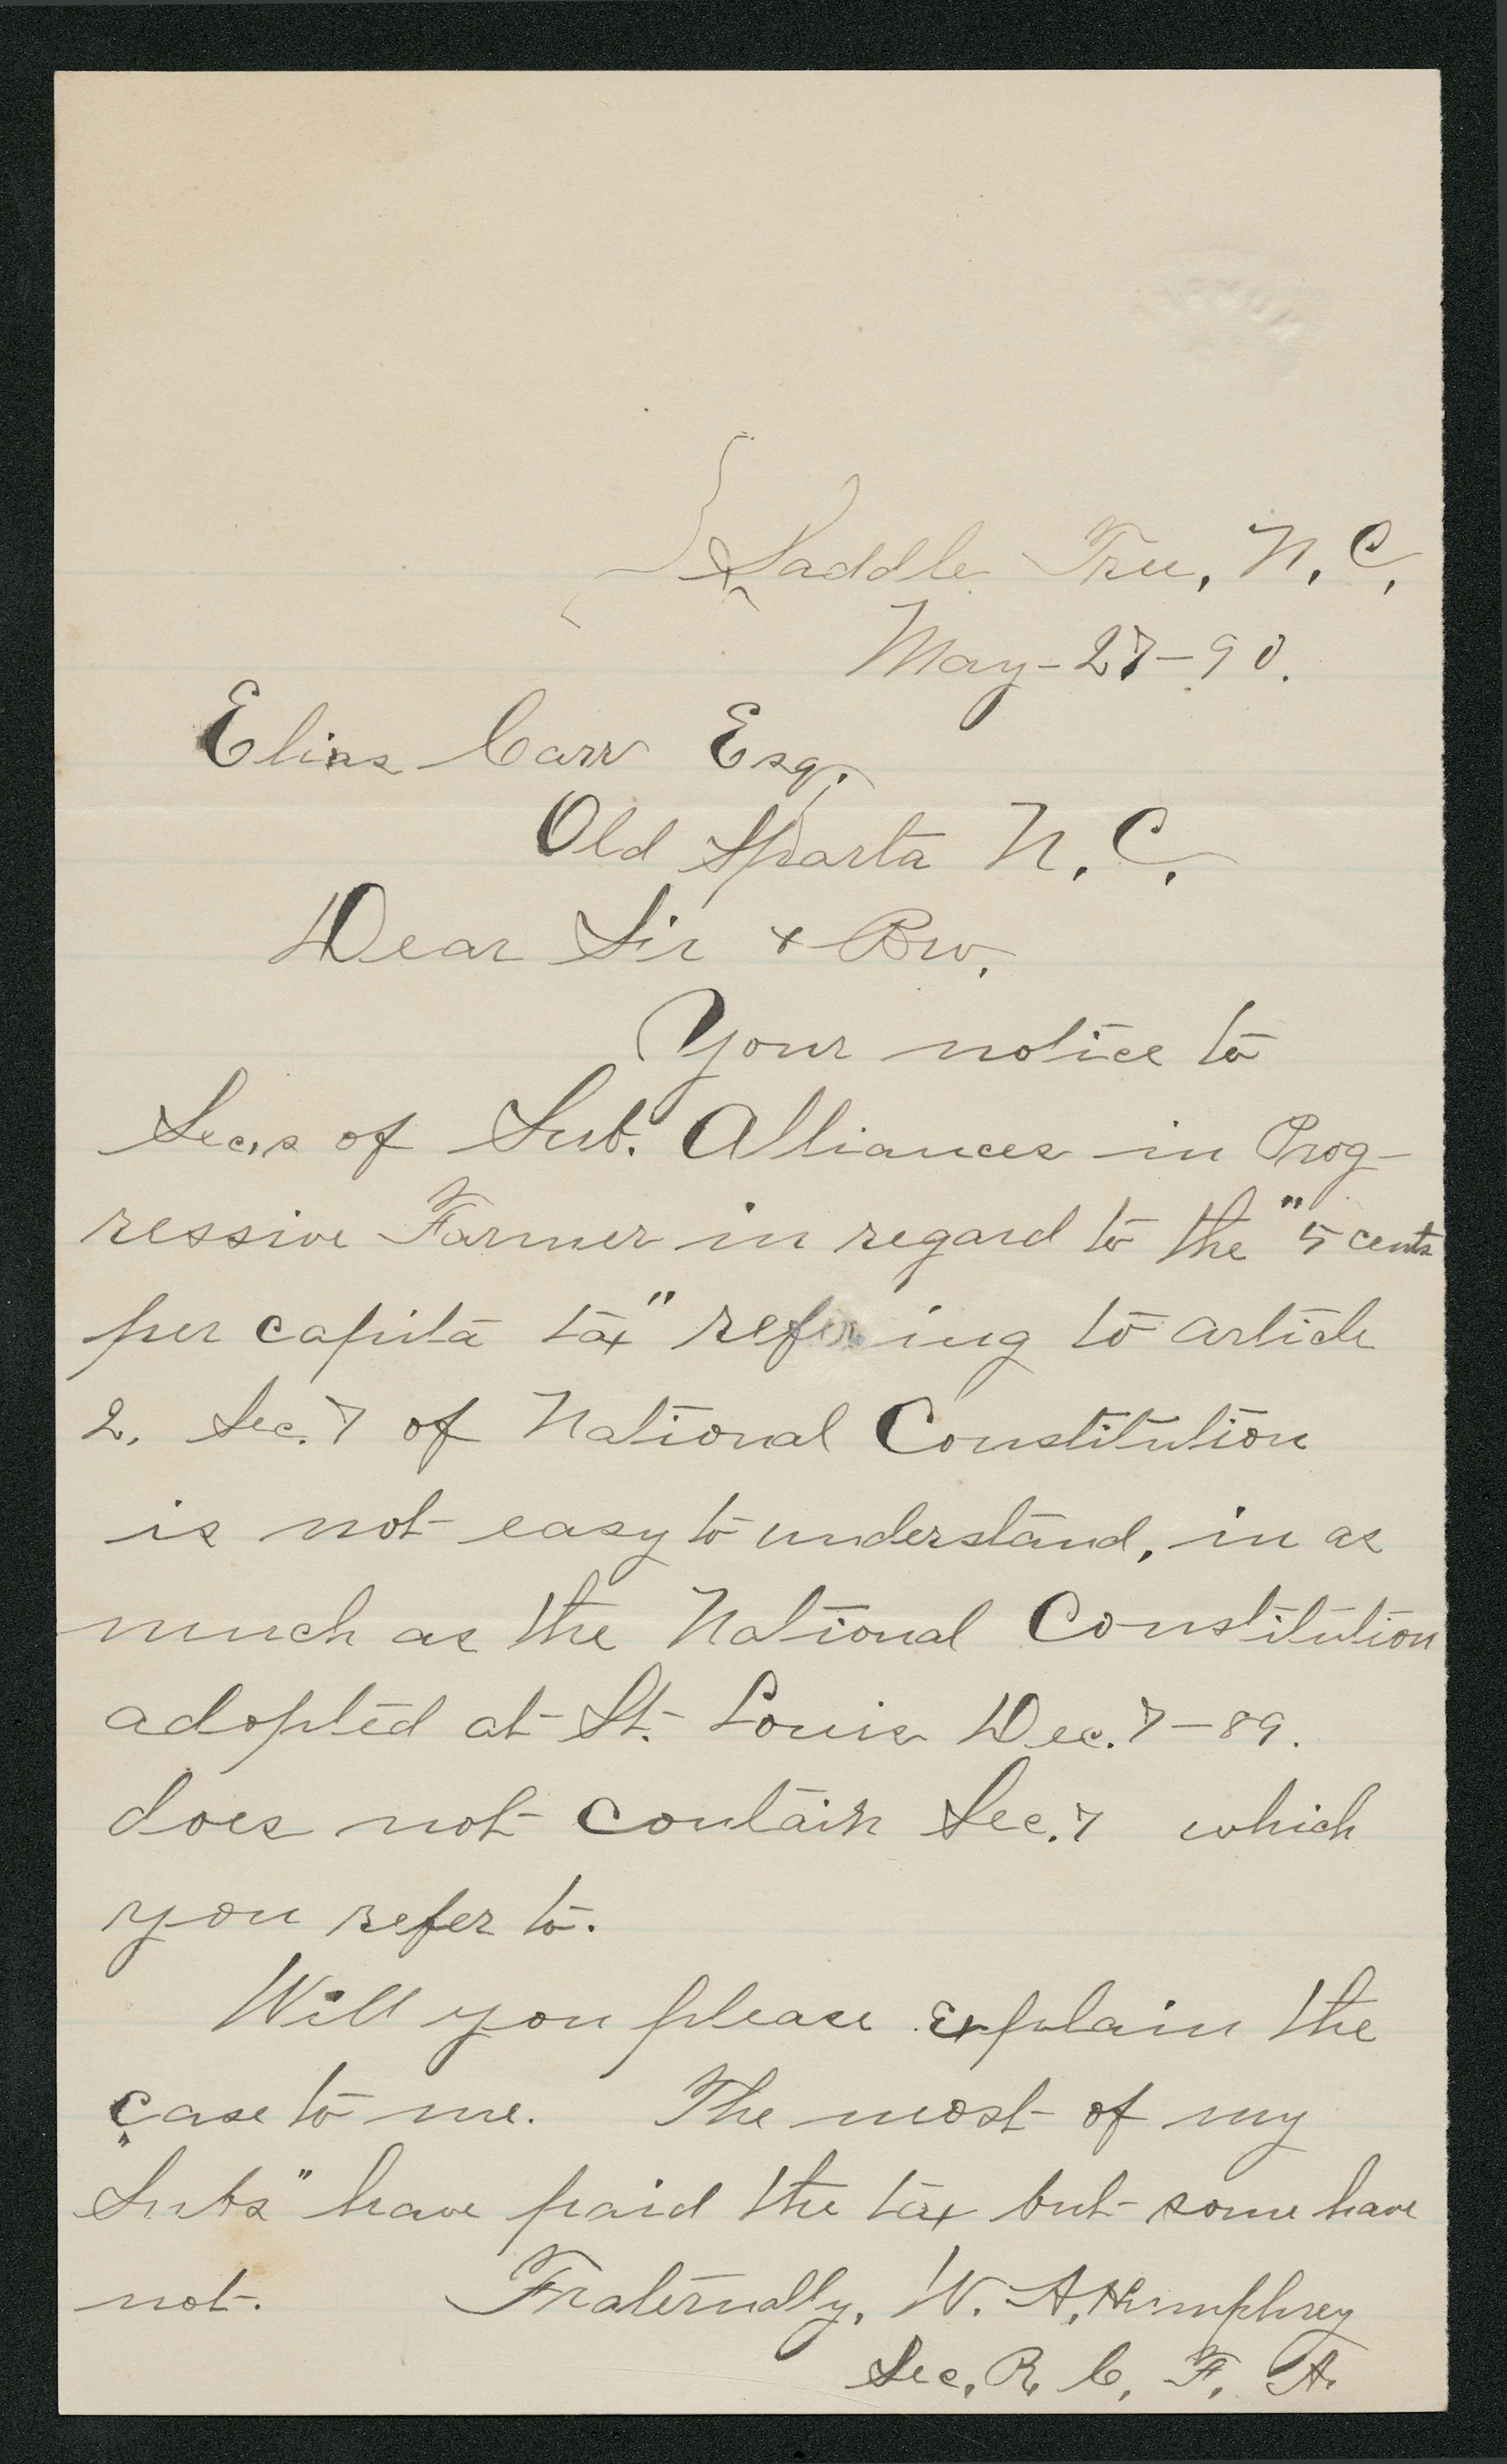 Saddle Tree, N.C.
May-27-90.
Elias Carr Esq.
Old Sparta N.C.
Dear Sir & Bro.
Your notice to
Sec,s of Sub. Alliances in Prog-
ressive Farmer in regard to the "5 cents
per capita tax" refering to article
2, Sec. 7 of National Constitution
is not easy to understand, in as
much as the National Constitution
adopted at St. Louis Dec. 7-89.
does not contain Sec. 7 which
you refer to.
Will you please explain the
case to me. The most of my
"Subs" have paid the tax but some have
not. Fraternally, W. A. Humphrey
Sec. R. C. F. A.